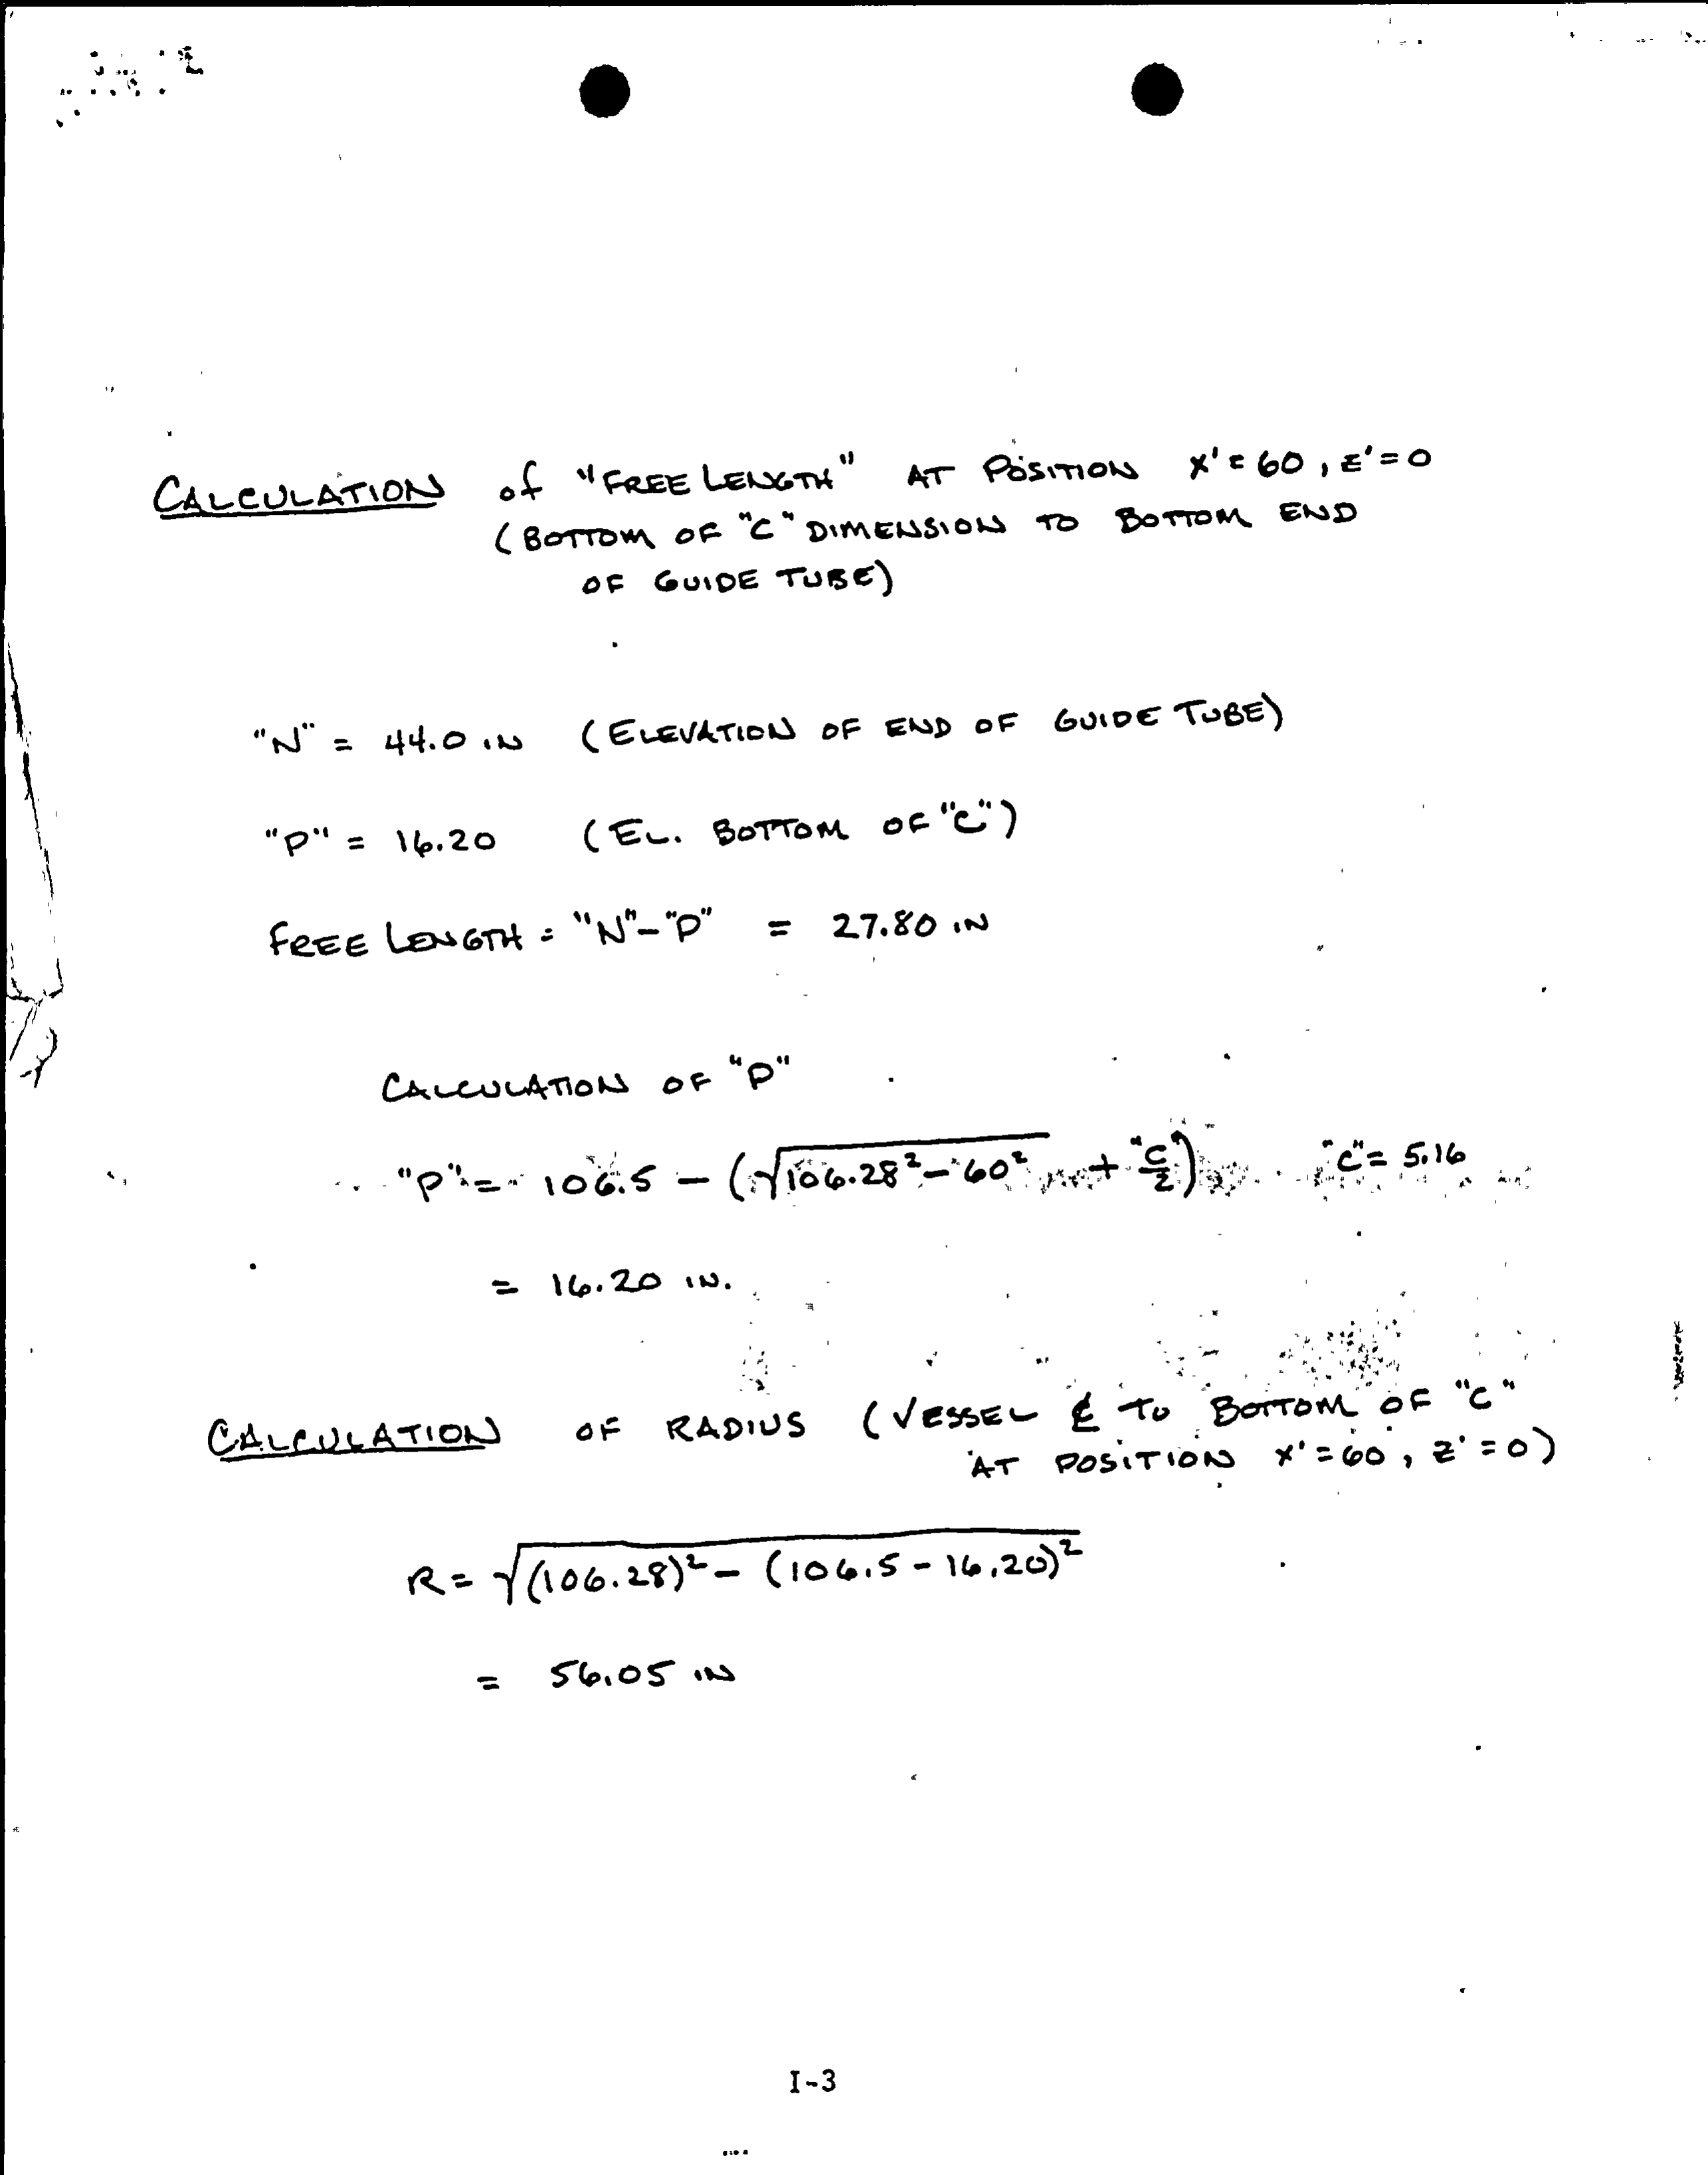 CALCULATION of "FREE LENGTH" AT POSITION X'=60, Z'=0
(BOTTOM OF "C" DIMENSION TO BOTTOM END
OF GUIDE TUBE)
"N" = 44.0 IN (ELEVATION OF END OF GUIDE TUBE)
"P" = 16.20 (EL. BOTTOM OF "C")
FREE LENGTH = "N"-"P" = 27.80 IN
CALCULATION OF "P"
"P" = 106.5 - (√106.28² - 60² + "C"/2) "C" = 5.16
= 16.20 IN.
CALCULATION OF RADIUS (VESSEL ℄ TO BOTTOM OF "C"
AT POSITION X'=60, Z'=0)
R = √(106.28)² - (106.5 - 16.20)²
= 56.05 IN
I-3